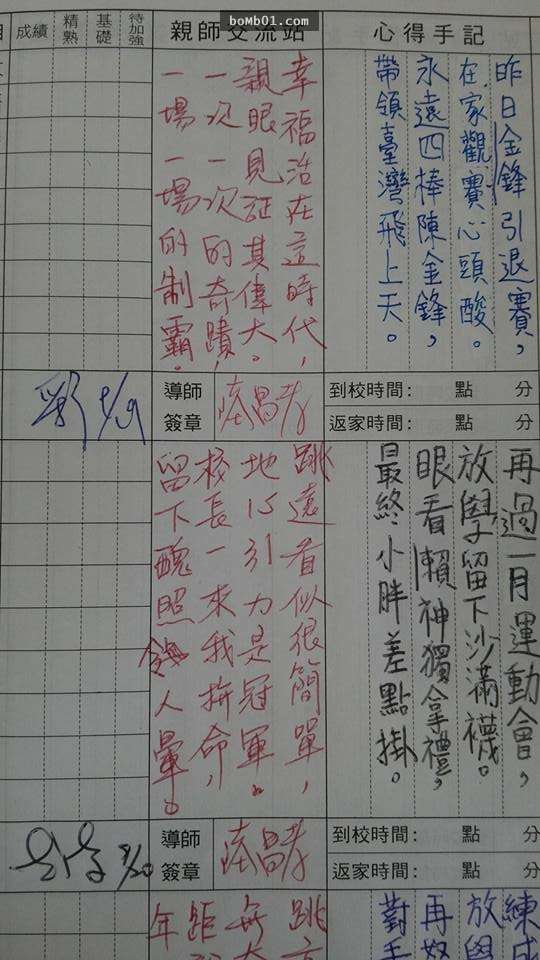 boMb01.com
心得手記
親師交流站
待加強
基礎
精熟
成績
昨日金鋒引退賽，
在家觀賽心頭酸。
永遠四棒陳金鋒，
帶領臺灣飛上天。
幸福活在這時代，
親眼見証其偉大。
一次一次的奇蹟，
一場一場的制霸。
到校時間： 點 分
返家時間： 點 分
導師
簽章
再過一月運動會，
放學留下沙滿襪。
眼看賴神獨拿禮，
最終小胖差點掛。
跳遠看似很簡單，
地心引力是冠軍。
校長一來我拚命，
留下醜照人暈。
到校時間： 點 分
返家時間： 點 分
導師
簽章
9/20
放學
再
對手
跳
距
年